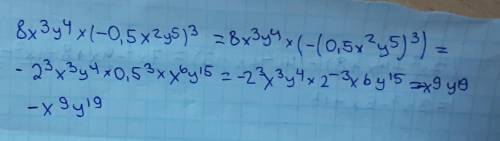 8x³y⁴×(-0,5x²y⁵)³ = 8x³y⁴×(-(0,5x²y⁵)³) =
-2³x³y⁴×0,5³×x⁶y¹⁵ = -2³x³y⁴×2⁻³x⁶y¹⁵ =
-x⁹y¹⁹